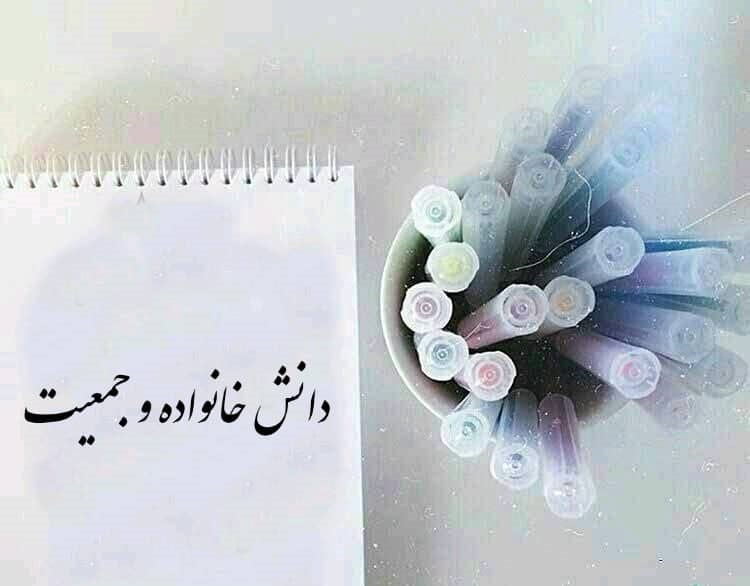 دانش خانواده و جمعیت